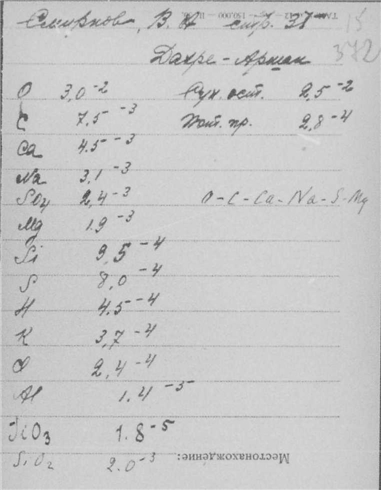 Смирнов, В. А стр. 38
15
372
Дахре-Арман
O 3,0⁻² Сух. ост. 2,5⁻²
C 7,5⁻³ Пот. пр. 2,8⁻⁴
Ca 4.5⁻³
Na 3,1⁻³
SO4 2,4⁻³ O-C-Ca-Na-S-Mg
Mg 1.9⁻³
Si 9,5⁻⁴
S 8,0⁻⁴
H 4.5⁻⁴
K 3,7⁻⁴
Cl 2,4⁻⁴
Al 1.4⁻⁵
TiO3 1.8⁻⁵
SiO2 2.0⁻³
Местонахождение: